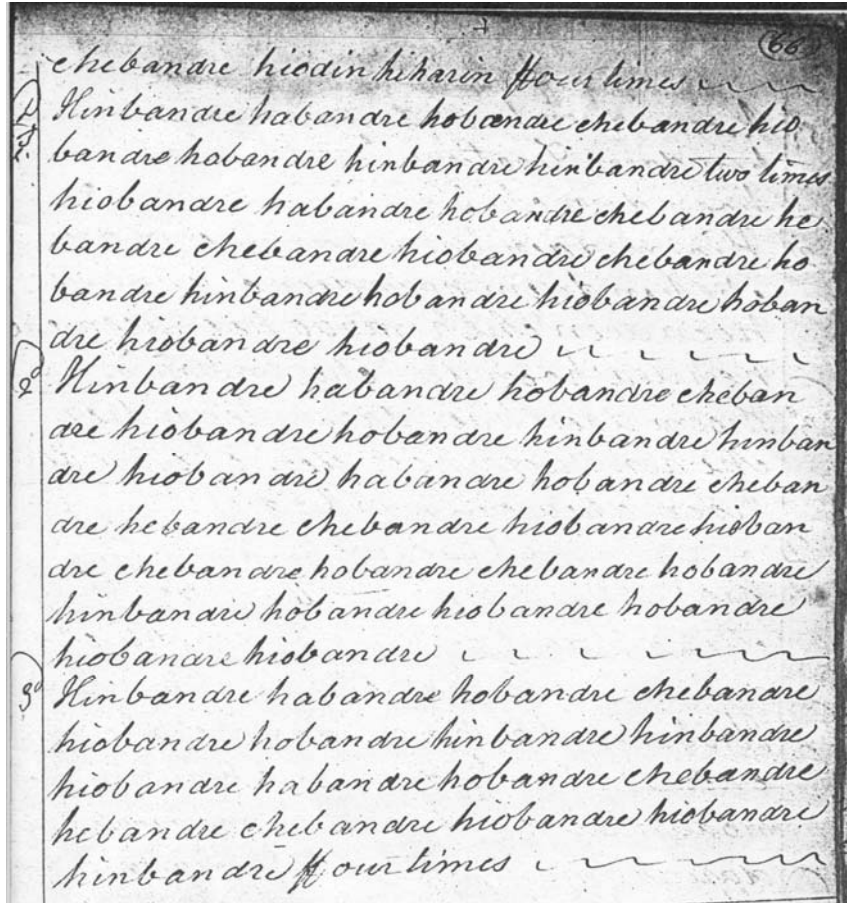 66
chebandre hiodin hiharin ffour times
1st
Hinbandre habandre hobandre chebandre hio
bandre hobandre hinbandre hinbandre two times
hiobandre habandre hobandre chebandre he
bandre chebandre hiobandre chebandre ho
bandre hinbandre hobandre hiobandre hoban
dre hiobandre hiobandre
2d
Hinbandre habandre hobandre cheban
dre hiobandre hobandre hinbandre hinban
dre hiobandre habandre hobandre cheban
dre hebandre chebandre hiobandre hioban
dre chebandre hobandre chebandre hobandre
hinbandre hobandre hiobandre hobandre
hiobandre hiobandre
3d
Hinbandre habandre hobandre chebandre
hiobandre hobandre hinbandre hinbandre
hiobandre habandre hobandre chebandre
hebandre chebandre hiobandre hiobandre
hinbandre ffour times